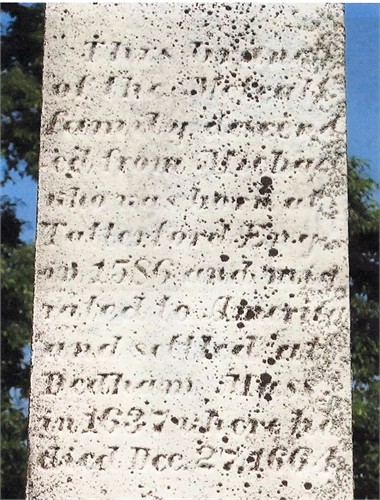 This branch
of the Metcalf
family, descend
ed from Michael
who was born at
Tatterford Eng.
in 1586 and mig
rated to America
and settled at
Dedham, Mass.
in 1637 where he
died Dec. 27, 166